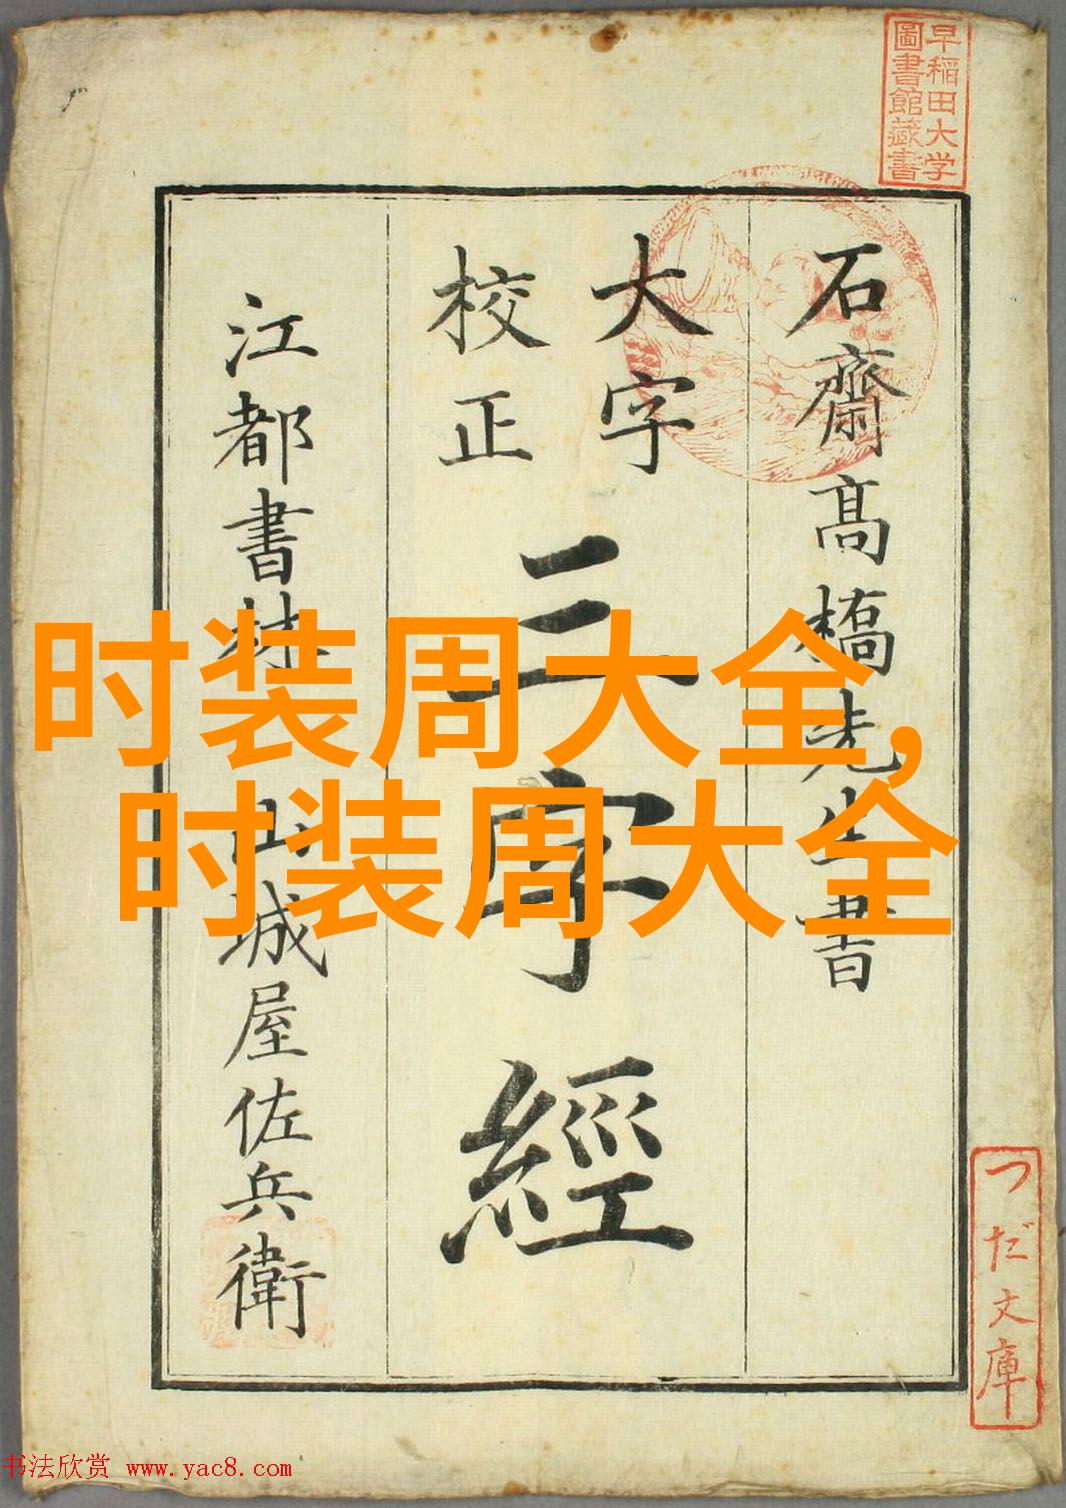 早稲田大学
圖書館藏書
石齋髙橋先生書
大字
校正
三字經
江都書林 山城屋佐兵衛
时装周大全,
时装周大全
つだ文庫
书法欣赏 www.yac8.com